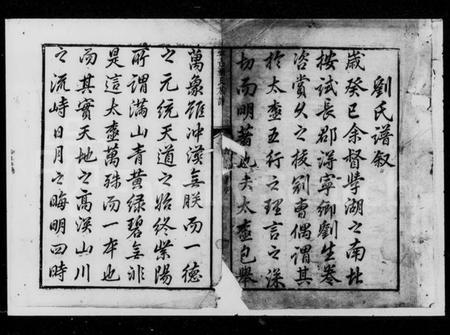 劉氏譜叙
歲癸已余督學湖之南北
按試長郡得寧卿劉生卷
咨賞久之接劉曹偶謂其
於太極五行之理言之深
切而明著也夫太極已舉
萬象雖冲漠無朕而一德
之元統天道之始終紫陽
所謂滿山青黃綠碧無非
是這太極萬殊而一本也
而其實天地之高深山川
之流峙日月之晦明四時